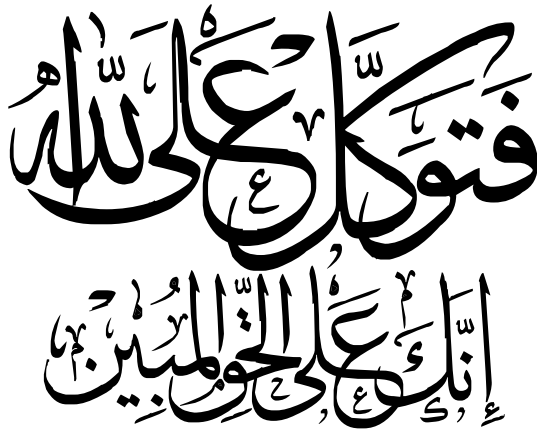 فَتَوَكَّلْ عَلَى اللَّهِ
إِنَّكَ عَلَى الْحَقِّ الْمُبِينِ